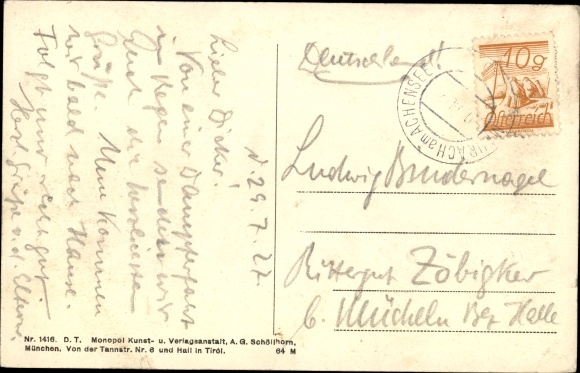 d. 29.7.27.
Lieber Dicker!
Von einer Dampferfahrt
in Regen senden wir
Euch die herzlichsten
Grüße. Nun kommen
wir bald nach Hause.
Folgt nur recht gut.
Herzl. Grüße v. d. Eltern.
Deutschland
10g
Österreich
MAURACH am ACHENSEE
Ludwig Brudernagel
Rittergut Zöbigker
b. Mücheln Bez Halle
Nr. 1416. D. T. Monopol Kunst- u. Verlagsanstalt, A. G. Schöllhorn,
München. Von der Tannstr. Nr. 6 und Hall in Tirol. 64 M